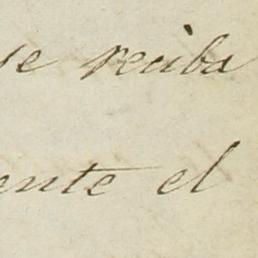 se reciba
ente el